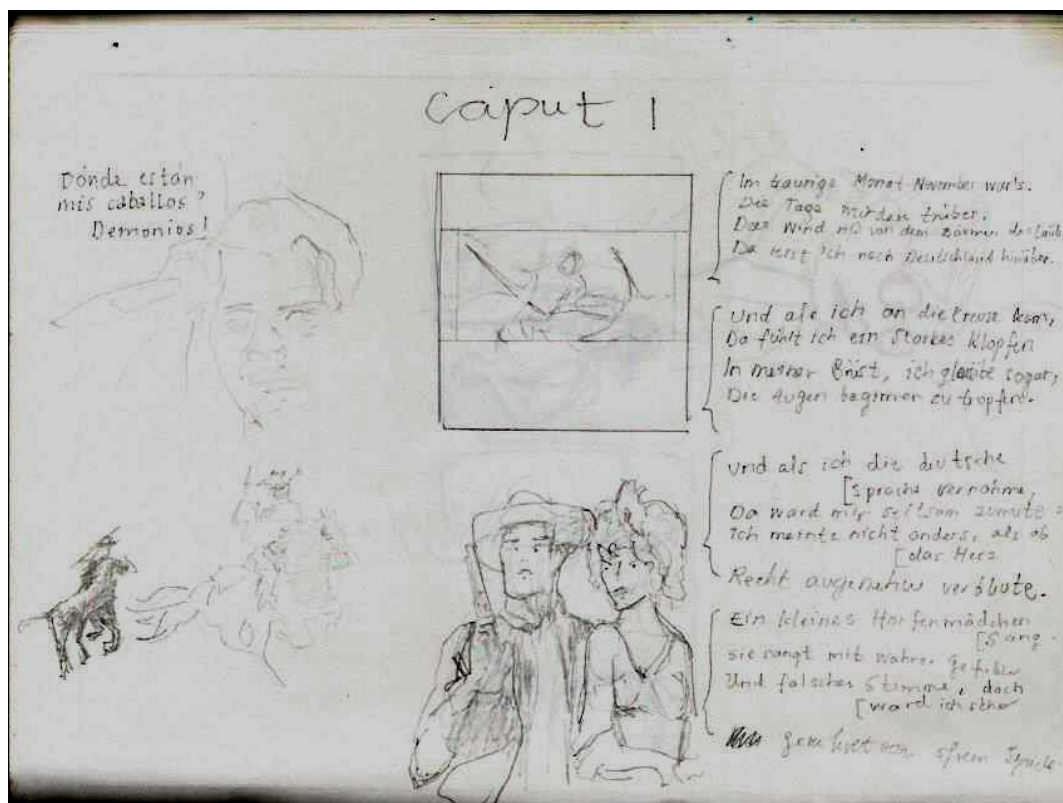 Caput 1
Dónde están
mis caballos?
Demonios!
Im traurige Monat November war's.
Die Tage wurden trüber.
Der Wind riß von dem Bäumen das Laub
Da reist ich nach Deutschland hinüber.
Und als ich an die Grenze kam,
Da fühlt ich ein Starkes Klopfen
In meiner Brust, ich glaube sogar,
Die Augen beginnen zu tropfen.
Und als ich die deutsche
[Sprache vernahme,
Da ward mir seltsam zumute
Ich meinte nicht anders, als ob
[das Herz
Recht angenehm verblute.
Ein kleines Harfenmädchen
[Sang
sie sangt mit wahre
Und falscher Stimme, doch
[ward ich sehr